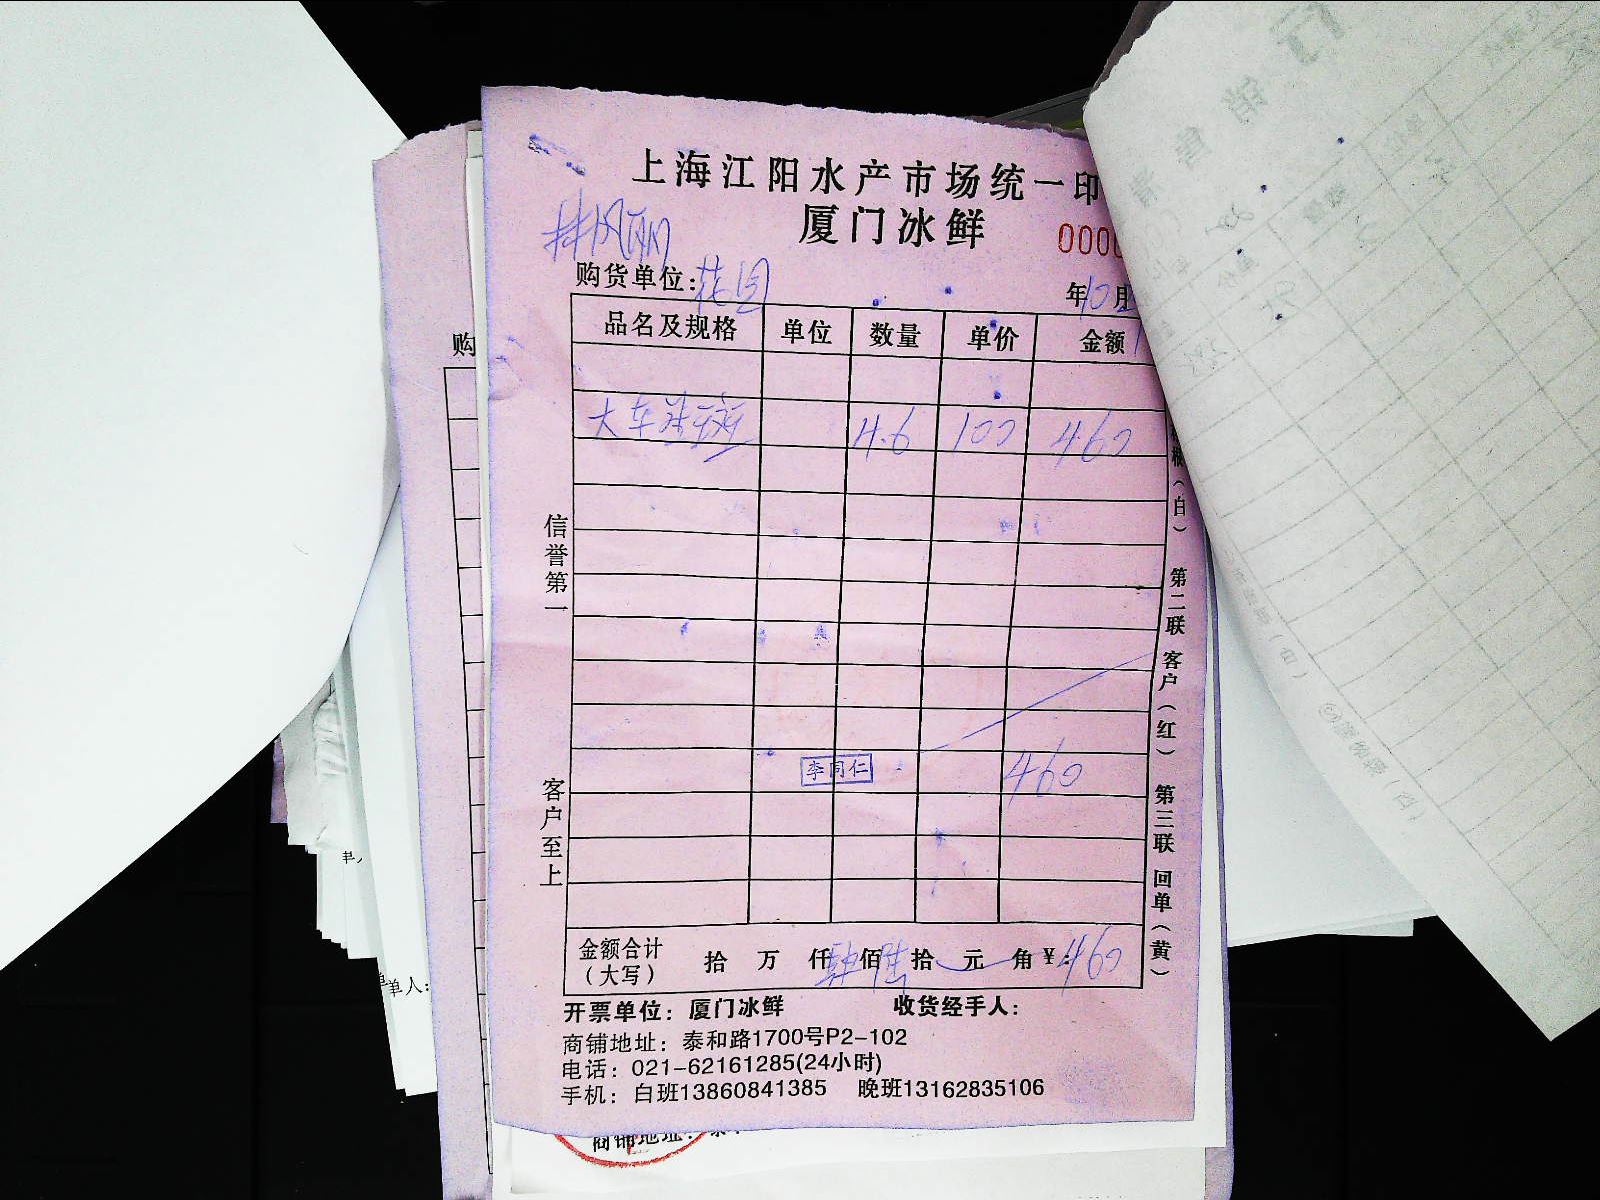 上海江阳水产市场统一印
厦门冰鲜
0000
购货单位：花园
年10月
品名及规格 单位 数量 单价 金额
4.6 100 460
信誉第一
客户至上
李同仁
460
（白） 第二联 客户（红） 第三联 回单（黄）
金额合计（大写） 拾 万 仟 肆佰 陆拾 元 角 ¥：460
开票单位：厦门冰鲜 收货经手人：
商铺地址：泰和路1700号P2-102
电话：021-62161285(24小时)
手机：白班13860841385 晚班13162835106
购
单人：
商铺地址：泰